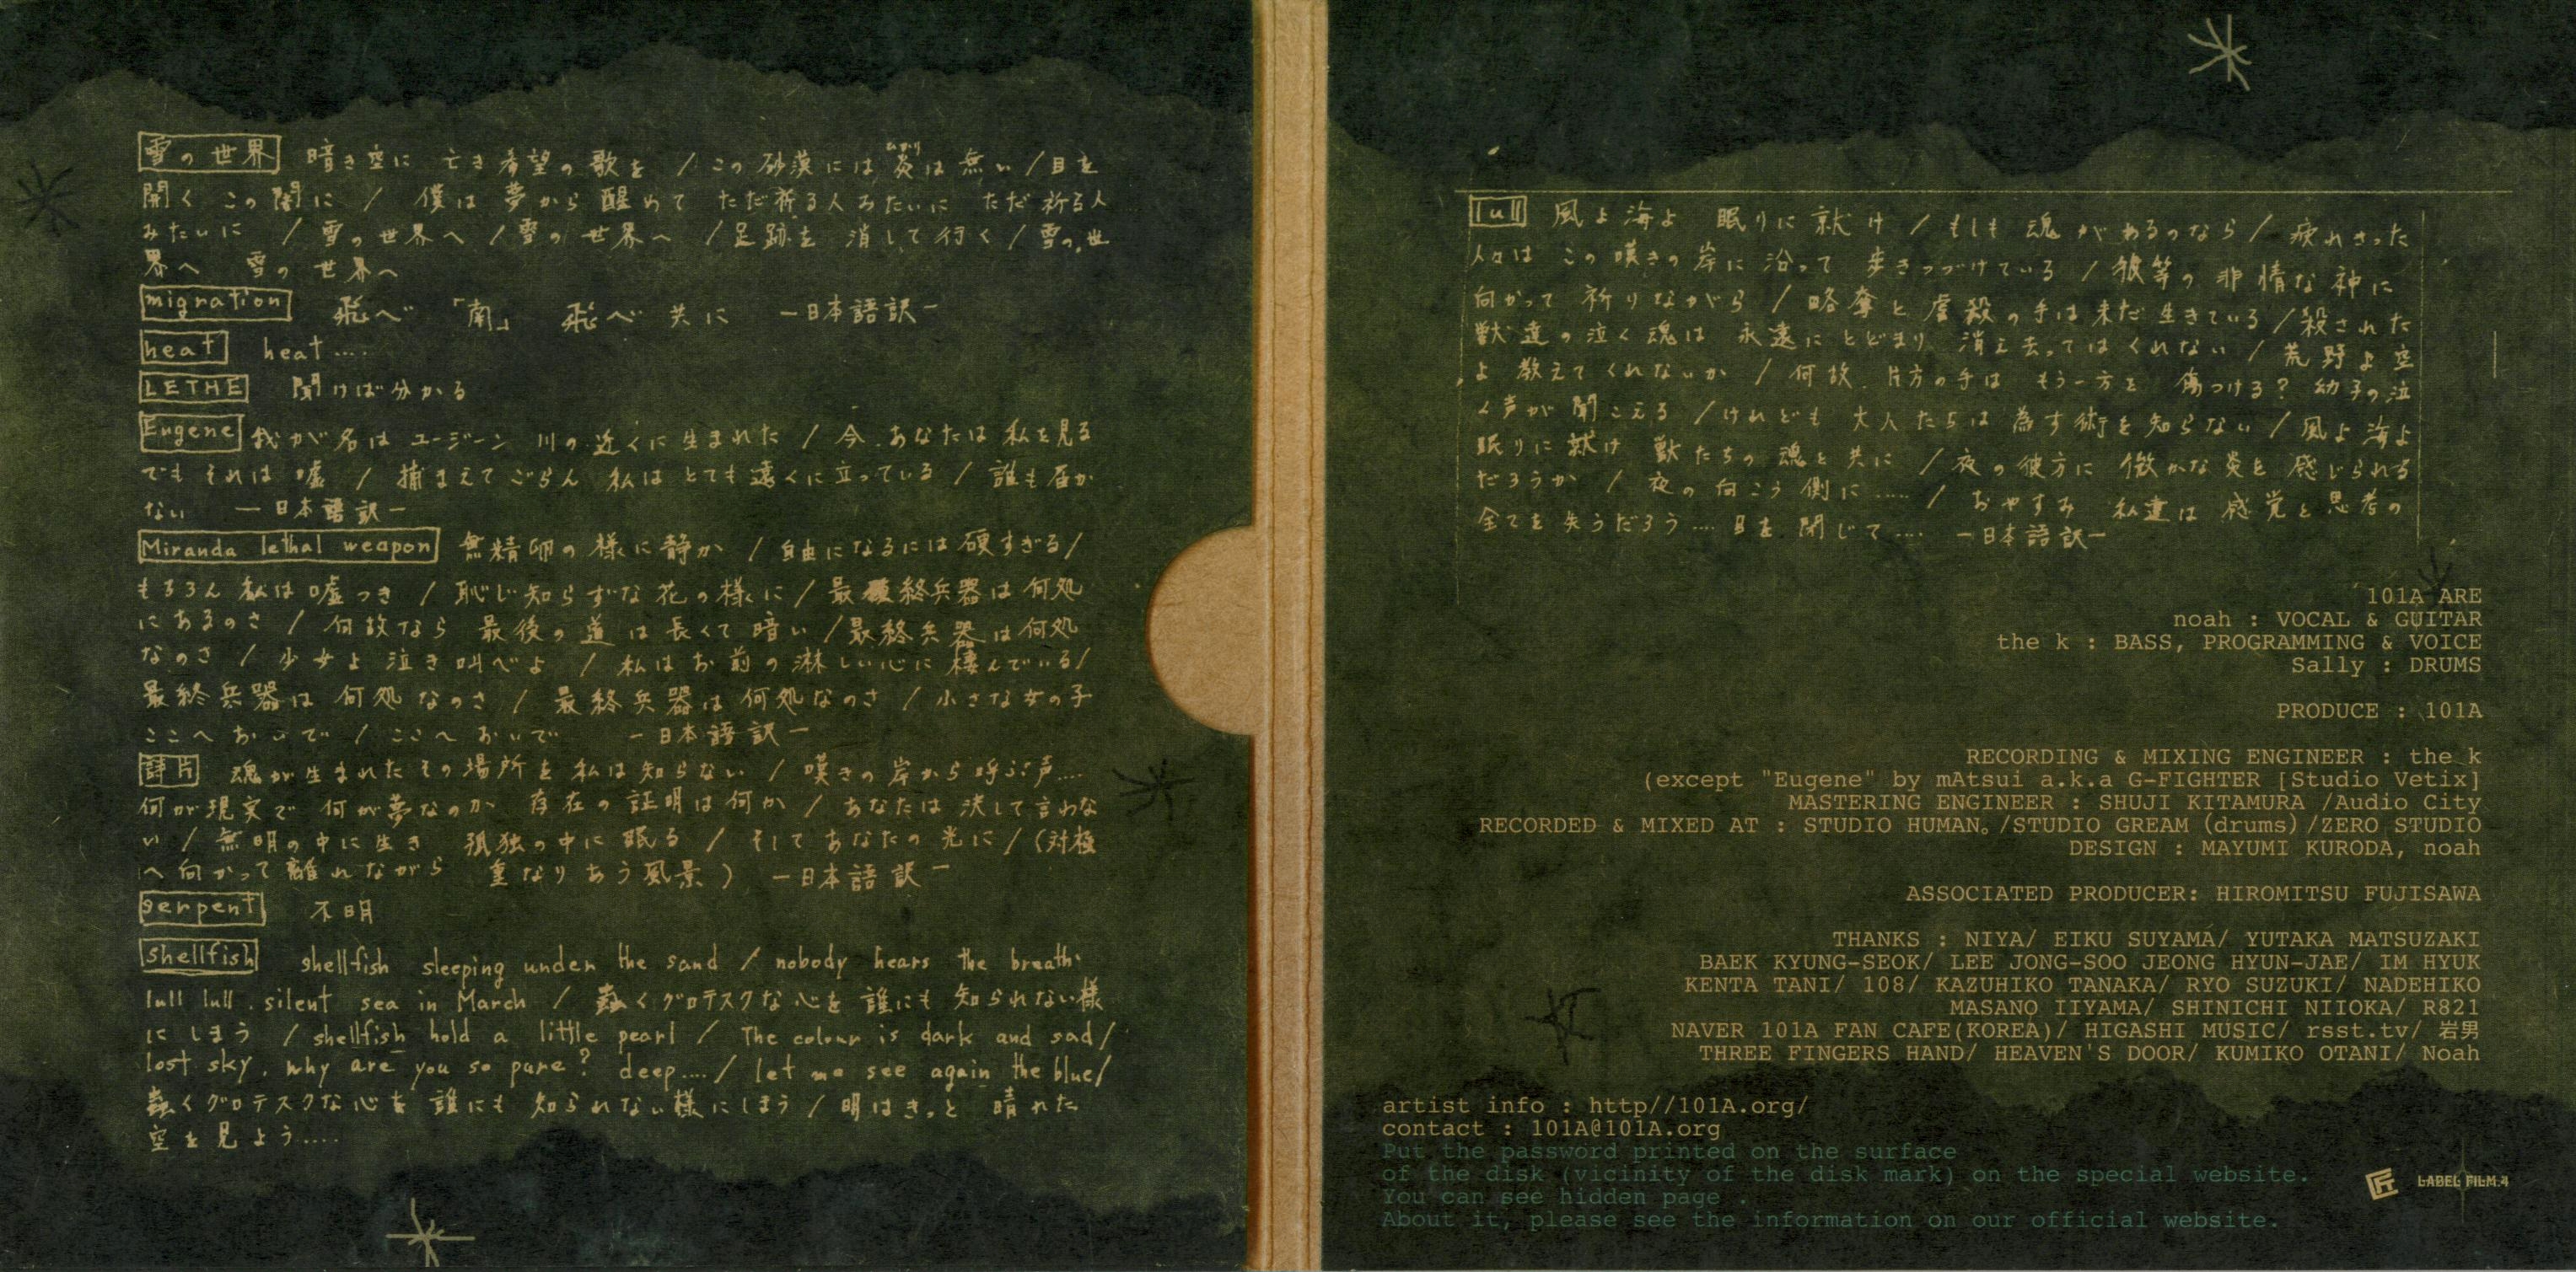 雪の世界 暗き空に 亡き希望の歌を / この砂漠には炎は無い / 目を
ひかり
開く この闇に / 僕は夢から醒めて ただ祈る人みたいに ただ祈る人
みたいに / 雪の世界へ / 雪の世界へ / 足跡を 消して行く / 雪の世
界へ 雪の世界へ
migration 飛べ 「南」 飛べ 共に —日本語訳—
heat heat....
LETHE 聞けば分かる
Eugene 我が名は ユージーン 川の近くに生まれた / 今、あなたは 私を見る
でも それは 嘘 / 捕まえてごらん 私は とても遠くに立っている / 誰も届か
ない —日本語訳—
Miranda lethal weapon 無精卵の様に静か / 自由になるには硬すぎる/
もちろん 私は嘘つき / 恥じ知らずな花の様に / 最終兵器は何処
にあるのさ / 何故なら 最後の道は長くて暗い / 最終兵器は何処
なのさ / 少女よ泣き叫べよ / 私はお前の淋しい心に棲んでいる/
最終兵器は 何処なのさ / 最終兵器は何処なのさ / 小さな女の子
ここへ おいで / ここへ おいで —日本語訳—
詩片 魂が生まれたその場所を私は知らない / 嘆きの岸から呼ぶ声....
何が現実で 何が夢なのか 存在の証明は何か / あなたは 決して言わな
い / 無明の中に生き 孤独の中に眠る / そして あなたの光に / (対極
へ向かって離れながら 重なりあう風景) —日本語訳—
serpent 不明
shellfish shellfish sleeping under the sand / nobody hears the breath.
lull lull. silent sea in March / 蠢くグロテスクな心を 誰にも 知られない様
に しまう / shellfish hold a little pearl / The colour is dark and sad/
lost sky. why are you so pure? deep..../ let me see again the blue/
蠢くグロテスクな心を 誰にも 知られない様にしまう / 明日はきっと 晴れた
空を見よう....
lull 風よ海よ 眠りに就け / もしも魂があるのなら / 疲れきった
人々は この嘆きの岸に沿って 歩きつづけている / 彼等の非情な神に
向かって 祈りながら / 略奪と虐殺の手は未だ生きている / 殺された
獣達の泣く魂は 永遠にとどまり 消え去ってはくれない / 荒野よ空
よ 教えてくれないか / 何故、片方の手は もう一方を 傷つける? 幼子の泣
く声が聞こえる / けれども 大人たちは 為す術を知らない / 風よ海よ
眠りに就け 獣たちの魂と共に / 夜の彼方に 微かな炎を感じられる
だろうか / 夜の向こう側に...... / おやすみ 私達は感覚と思考の
全てを失うだろう.... 目を閉じて.... —日本語訳—
101A ARE
noah : VOCAL & GUITAR
the k : BASS, PROGRAMMING & VOICE
Sally : DRUMS
PRODUCE : 101A
RECORDING & MIXING ENGINEER : the k
(except "Eugene" by mAtsui a.k.a G-FIGHTER [Studio Vetix]
MASTERING ENGINEER : SHUJI KITAMURA /Audio City
RECORDED & MIXED AT : STUDIO HUMAN。/STUDIO GREAM (drums)/ZERO STUDIO
DESIGN : MAYUMI KURODA, noah
ASSOCIATED PRODUCER: HIROMITSU FUJISAWA
THANKS : NIYA/ EIKU SUYAMA/ YUTAKA MATSUZAKI
BAEK KYUNG-SEOK/ LEE JONG-SOO JEONG HYUN-JAE/ IM HYUK
KENTA TANI/ 108/ KAZUHIKO TANAKA/ RYO SUZUKI/ NADEHIKO
MASANO IIYAMA/ SHINICHI NIIOKA/ R821
NAVER 101A FAN CAFE(KOREA)/ HIGASHI MUSIC/ rsst.tv/ 岩男
THREE FINGERS HAND/ HEAVEN'S DOOR/ KUMIKO OTANI/ Noah
artist info : http//101A.org/
contact : 101A@101A.org
Put the password printed on the surface
of the disk (vicinity of the disk mark) on the special website.
You can see hidden page .
About it, please see the information on our official website.
匠 LABEL FILM.4